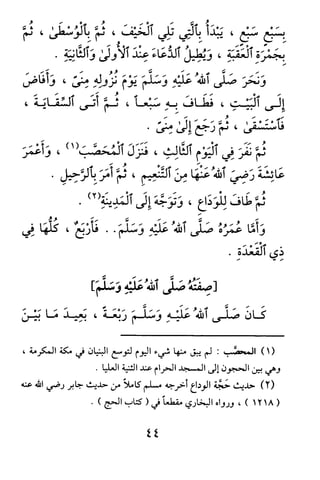 بِسَبْعٍ سَبْعٍ ، يَبْدَأُ بِٱلَّتِي تَلِي ٱلْخَيْفَ ، ثُمَّ بِٱلْوُسْطَىٰ ، ثُمَّ
بِجَمْرَةِ ٱلْعَقَبَةِ ، وَيُطِيلُ ٱلدُّعَاءَ عِنْدَ ٱلْأُولَىٰ وَٱلثَّانِيَةِ .
وَنَحَرَ صَلَّى ٱللهُ عَلَيْهِ وَسَلَّمَ يَوْمَ نُزُولِهِ مِنىً ، وَأَفَاضَ
إِلَى ٱلْبَيْتِ ، فَطَافَ بِهِ سَبْعاً ، ثُمَّ أَتَى ٱلسِّقَايَةَ ،
فَٱسْتَسْقَىٰ ، ثُمَّ رَجَعَ إِلَىٰ مِنىً .
ثُمَّ نَفَرَ فِي ٱلْيَوْمِ ٱلثَّالِثِ ، فَنَزَلَ ٱلْمُحَصَّبَ(١) ، وَأَعْمَرَ
عَائِشَةَ رَضِيَ ٱللهُ عَنْهَا مِنَ ٱلتَّنْعِيمِ ، ثُمَّ أَمَرَ بِٱلرَّحِيلِ .
ثُمَّ طَافَ لِلْوَدَاعِ ، وَتَوَجَّهَ إِلَى ٱلْمَدِينَةِ(٢) .
وَأَمَّا عُمَرُهُ صَلَّى ٱللهُ عَلَيْهِ وَسَلَّمَ.. فَأَرْبَعٌ ، كُلُّهَا فِي
ذِي ٱلْقَعْدَةِ .
[صِفَتُهُ صَلَّى ٱللهُ عَلَيْهِ وَسَلَّمَ]
كَانَ صَلَّى ٱللهُ عَلَيْهِ وَسَلَّمَ رَبْعَةً ، بَعِيدَ مَا بَيْنَ
(١) المحصَّب : لم يبق منها شيء اليوم لتوسع البنيان في مكة المكرمة ،
وهي بين الحجون إلى المسجد الحرام عند الثنية العليا .
(٢) حديث حَجَّة الوداع أخرجه مسلم كاملاً من حديث جابر رضي الله عنه
( ١٢١٨ ) ، ورواه البخاري مقطعاً في ( كتاب الحج ) .
٤٤